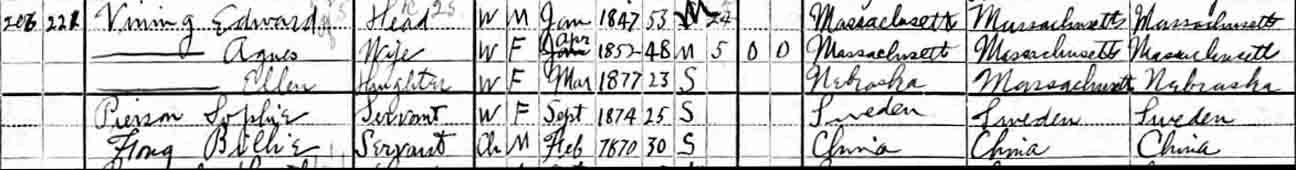 206 221 Vining Edward Head W M Jan 1847 53 M 24 Massachusetts Massachusetts Massachusetts
—— Agnes Wife W F Apr 1852 48 M 5 0 0 Massachusetts Massachusetts Massachusetts
—— Ellen Daughter W F Mar 1877 23 S Nebraska Massachusetts Nebraska
Pierson Sophie Servant W F Sept 1874 25 S Sweden Sweden Sweden
Fong Billie Servant Ch M Feb 1870 30 S China China China